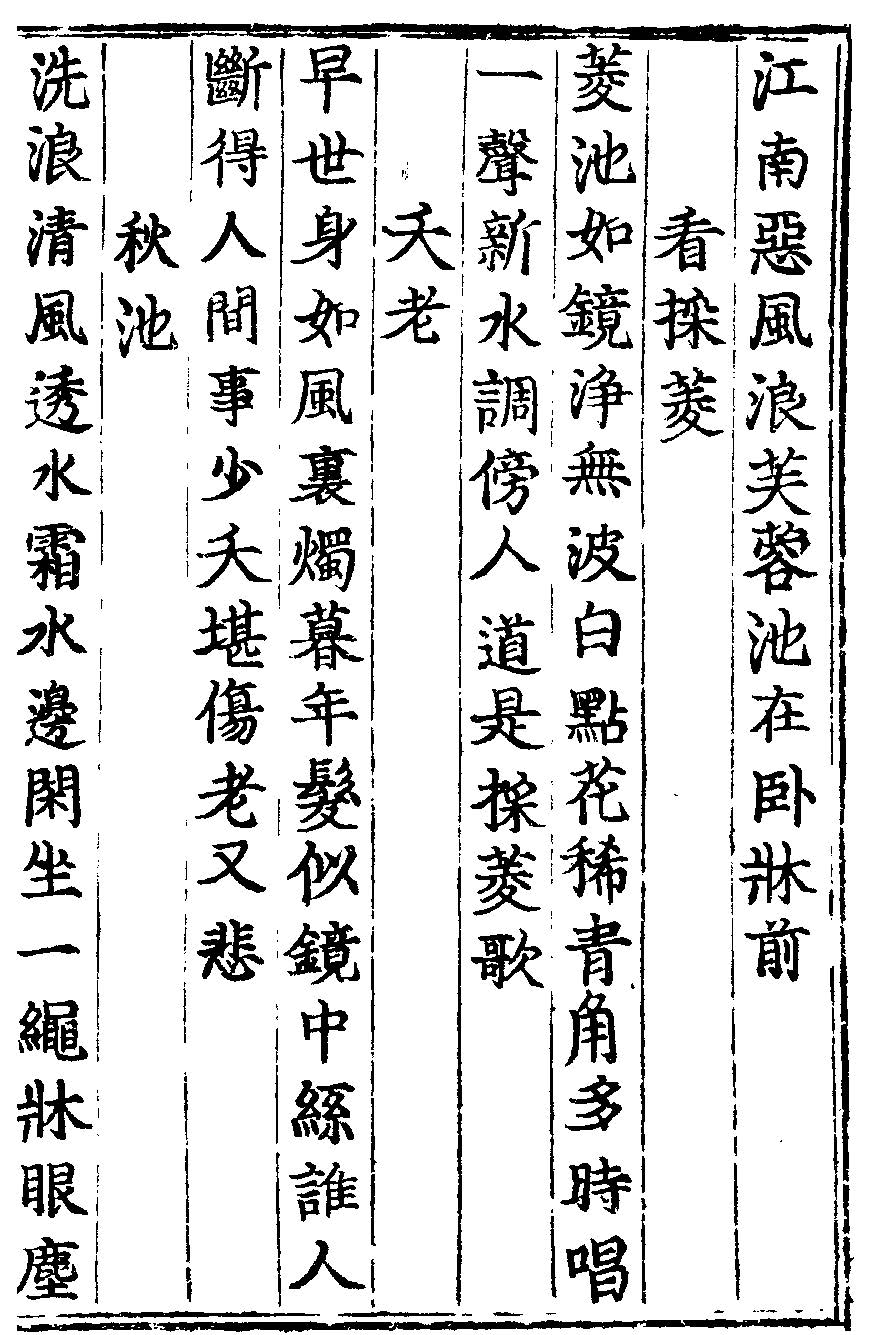 江南惡風浪芙蓉池在卧牀前
看採菱
菱池如鏡浄無波白點花稀青角多時唱
一聲新水調傍人道是採菱歌
夭老
早世身如風裏燭暮年髮似鏡中絲誰人
斷得人間事少夭堪傷老又悲
秋池
洗浪清風透水霜水邊閑坐一繩牀眼塵